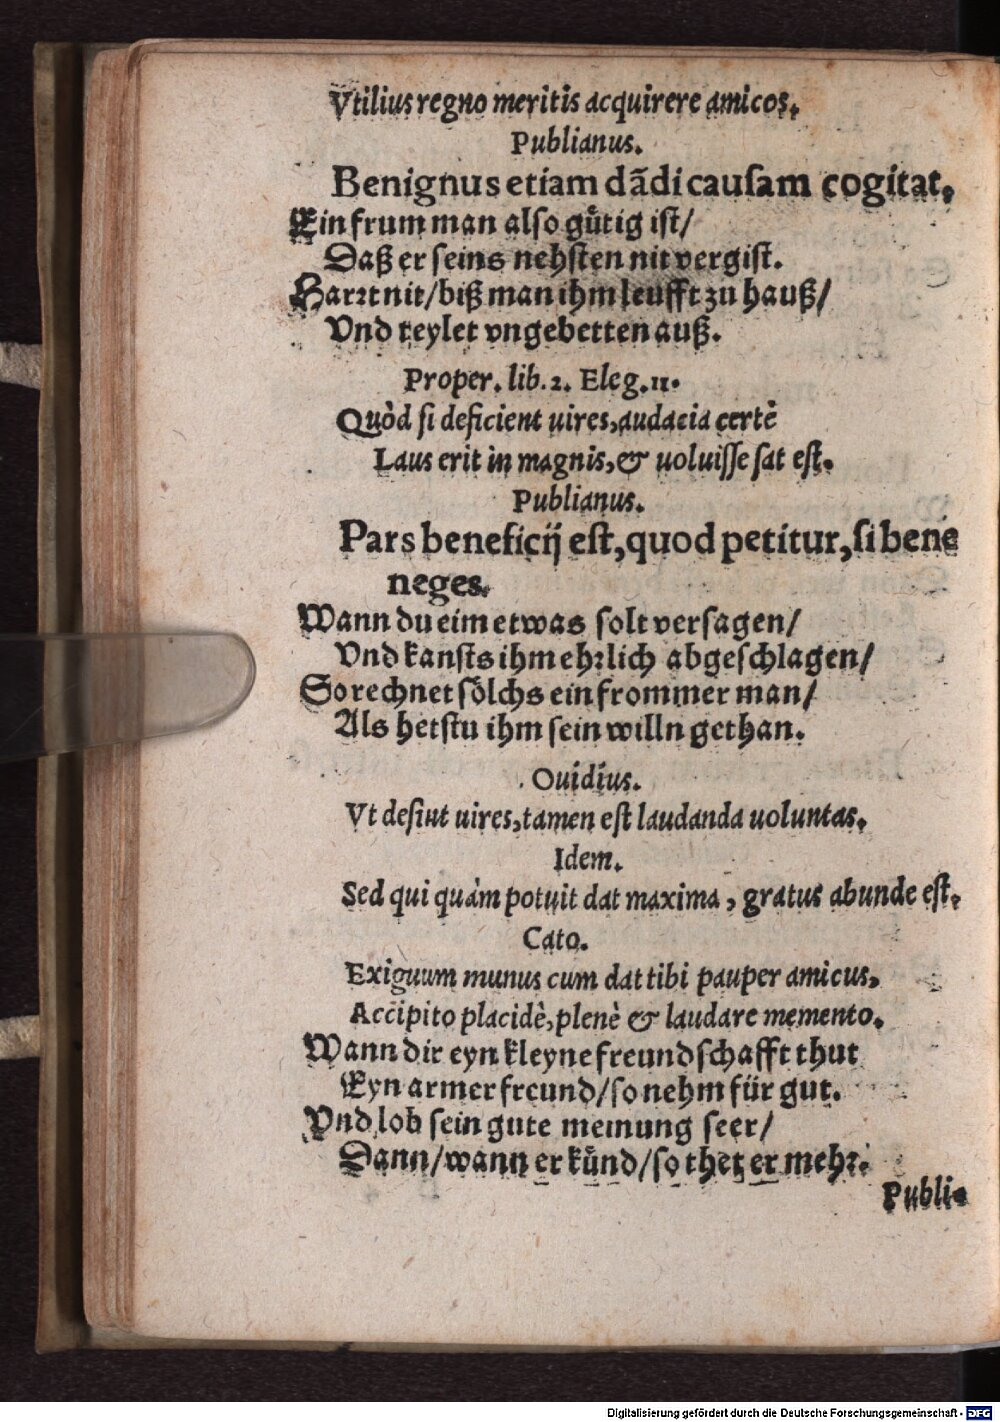 Vtilius regno meritis acquirere amicos.
Publianus.
Benignus etiam dãdi cauſam cogitat.
Ein frum man alſo guͤtig iſt/
Daß er ſeins nehſten nit vergiſt.
Harꝛt nit/biß man ihm leufft zu hauß/
Vnd teylet vngebetten auß.
Proper. lib. 2. Eleg. 11.
Quòd ſi deficient uires, audacia certè
Laus erit in magnis, & uoluiſſe ſat eſt.
Publianus.
Pars beneficij eſt, quod petitur, ſi bene
neges.
Wann du eim etwas ſolt verſagen/
Vnd kanſts ihm ehꝛlich abgeſchlagen/
So rechnet ſoͤlchs ein frommer man/
Als hetſtu ihm ſein willn gethan.
Ouidius.
Vt deſint uires, tamen eſt laudanda uoluntas.
Idem.
Sed qui quàm potuit dat maxima, gratus abunde eſt.
Cato.
Exiguum munus cum dat tibi pauper amicus,
Accipito placidè, plenè & laudare memento.
Wann dir eyn kleyne freundſchafft thut
Eyn armer freund/ſo nehm für gut.
Vnd lob ſein gute meinung ſeer/
Dann/wann er kuͤnd/ſo thet er mehꝛ.
Publi-
Digitalisierung gefördert durch die Deutsche Forschungsgemeinschaft - DFG